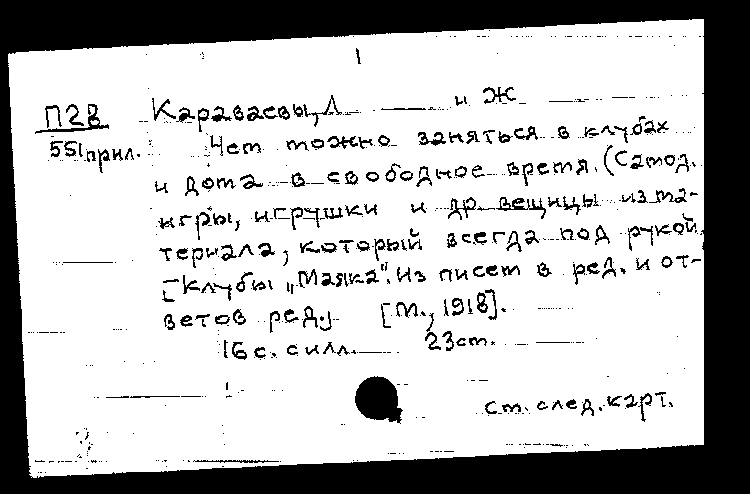 П28 Караваевы, Л и Ж
551 прил. Чем можно заняться в клубах
и дома в свободное время. (Самод.
игры, игрушки и др. вещицы из ма-
териала, который всегда под рукой.
[Клубы „Маяка". Из писем в ред. и от-
ветов ред.] [М., 1918].
16 с. с илл. 23 см.
см. след. карт.